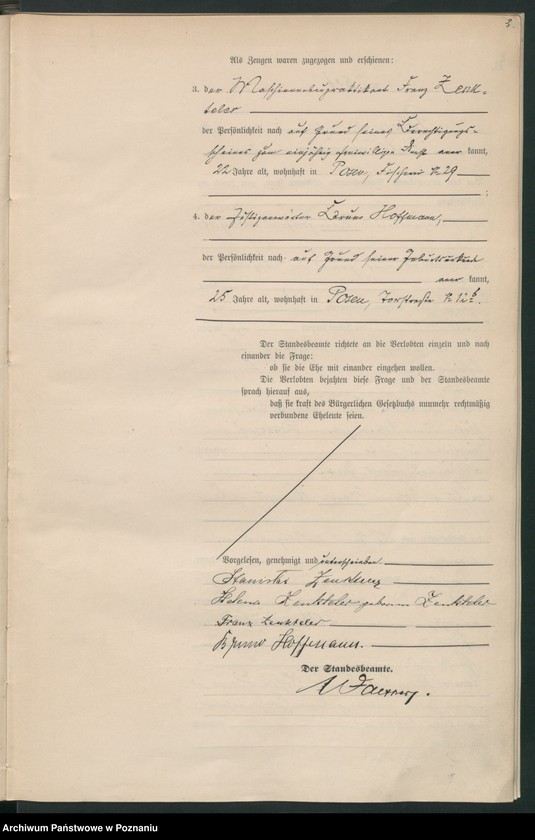 3.
Als Zeugen waren zugezogen und erschienen:
3. der Maschinenbaupraktikant Franz Zenk-
teler
der Persönlichkeit nach auf Grund seines Berechtigungs-
scheines zum einjährig freiwilligen Dienst aner kannt,
22 Jahre alt, wohnhaft in Posen, Fischerei No 29
;
4. der Bruno Hoffmann,
der Persönlichkeit nach auf Grund seiner Geburtsurkunde
aner kannt,
25 Jahre alt, wohnhaft in Posen, Torstraße No 12b.
Der Standesbeamte richtete an die Verlobten einzeln und nach
einander die Frage:
ob sie die Ehe mit einander eingehen wollen.
Die Verlobten bejahten diese Frage und der Standesbeamte
sprach hierauf aus,
daß sie kraft des Bürgerlichen Gesetzbuchs nunmehr rechtmäßig
verbundene Eheleute seien.
Vorgelesen, genehmigt und unterschrieben
Helena Zenkteler geborene Zenkteler
Franz Zenkteler
Bruno Hoffmann.
Der Standesbeamte.
Archiwum Państwowe w Poznaniu